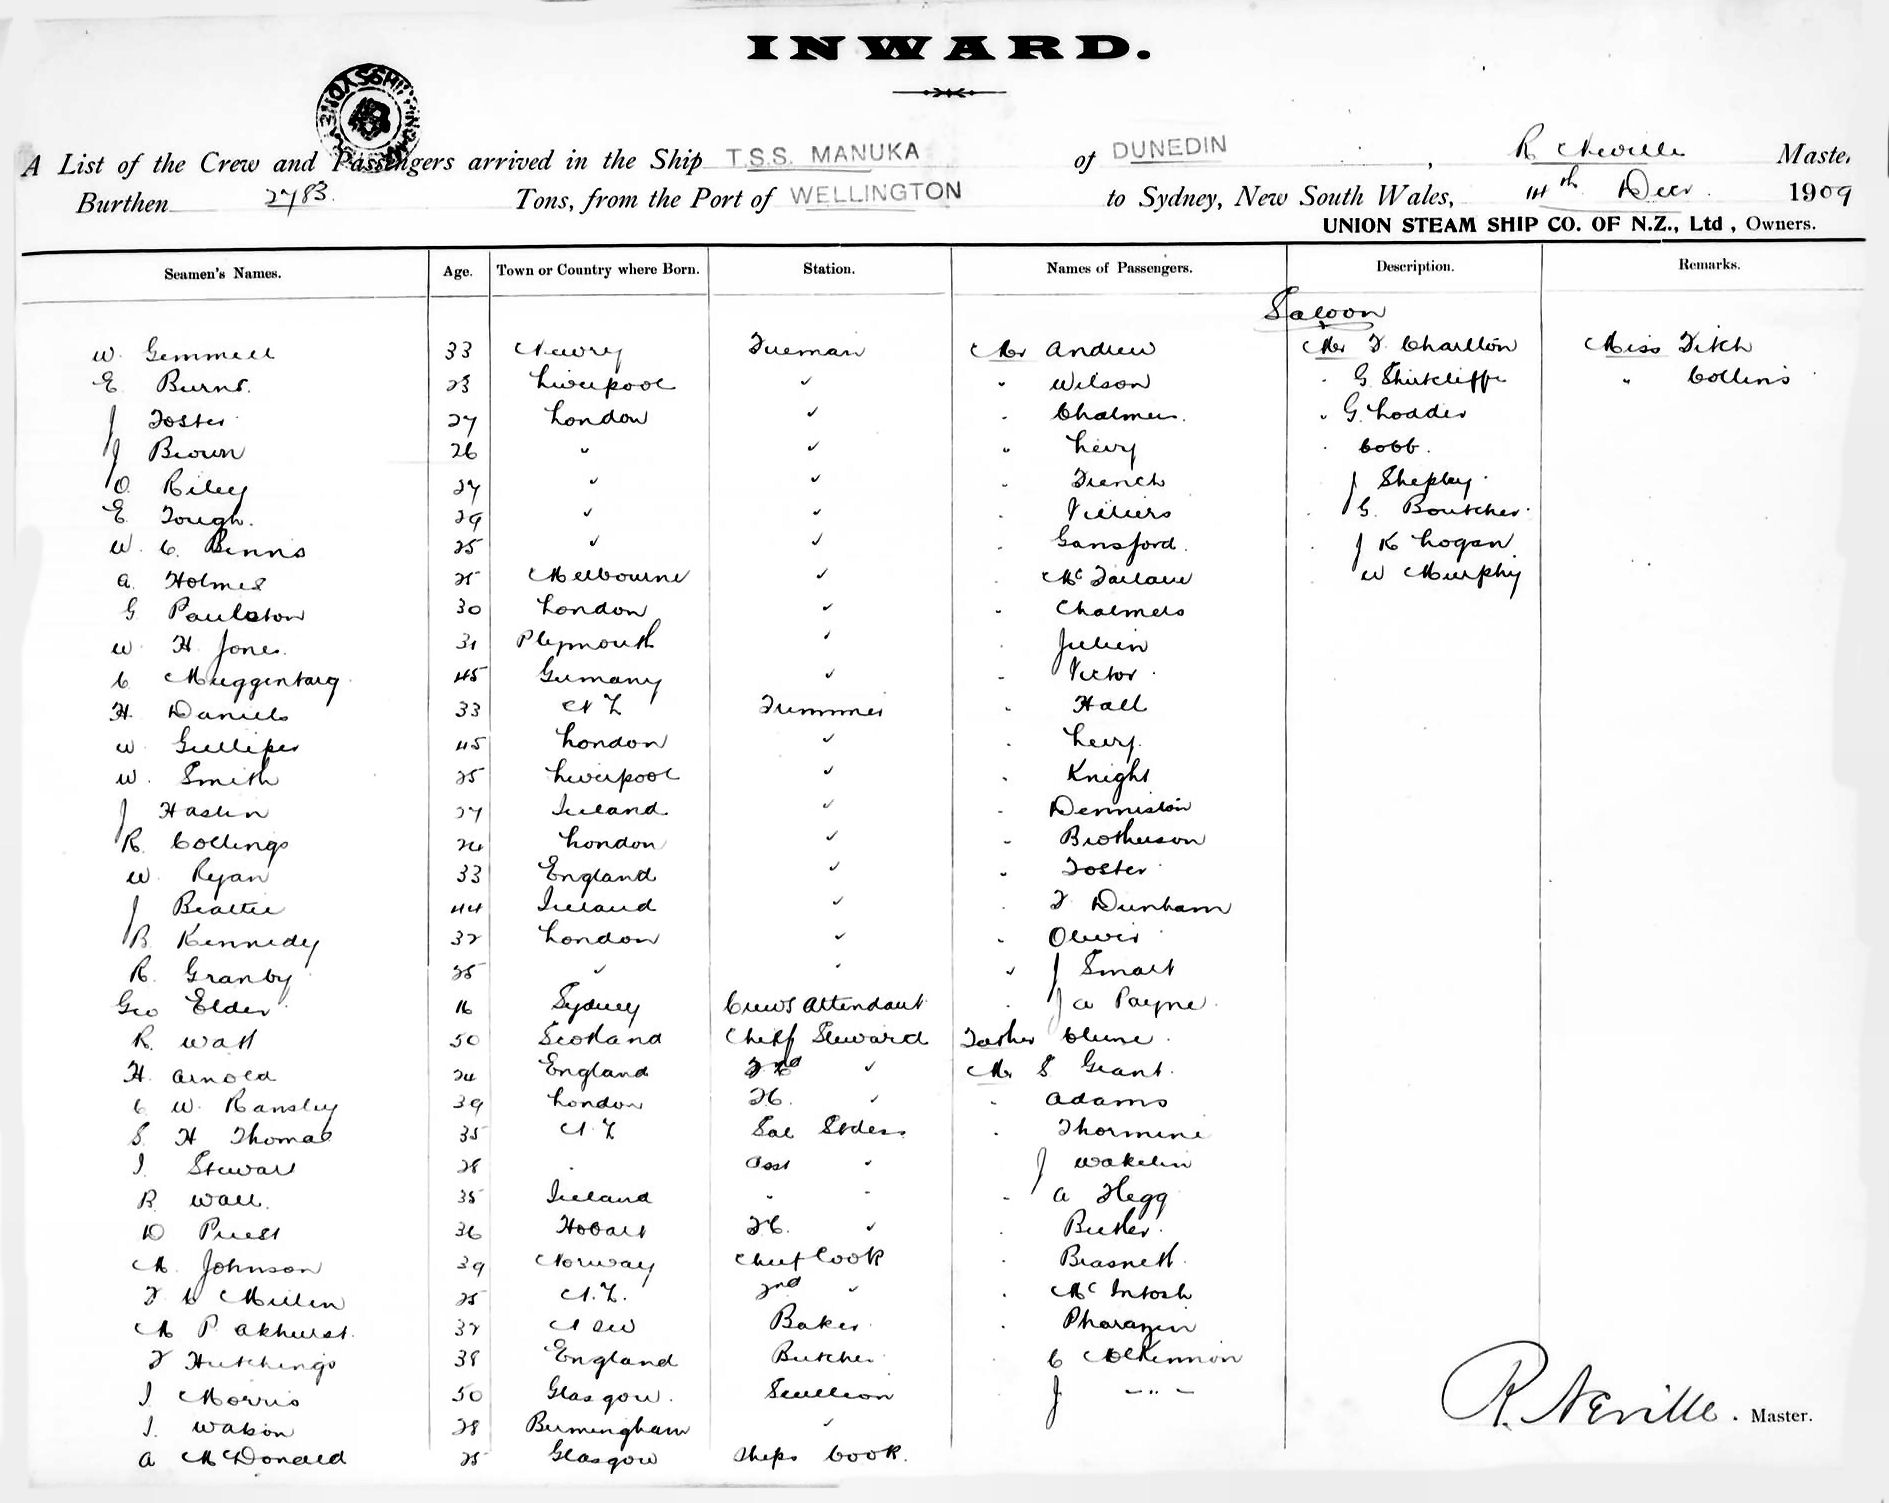 INWARD.
A List of the Crew and Passengers arrived in the Ship T.S.S. MANUKA of DUNEDIN, R Neville Master
Burthen 2783 Tons, from the Port of WELLINGTON to Sydney, New South Wales, 14th Decr. 1909
UNION STEAM SHIP CO. OF N.Z., Ltd, Owners.
Seamen's Names. Age. Town or Country where Born. Station. Names of Passengers. Description. Remarks.
Saloon
W. Gemmell 33 Newry Fireman Mr Andrew Mr F Charlton Miss Fitch
E Burns. 23 Liverpool " " Wilson " G Shirtcliffe " Collins
J Foster 27 London " " Chalmers. " G Lodder
J Brown 26 " " " Levy " Cobb.
O. Riley 27 " " " French J Shepley
E. Tough. 29 " " " Villiers " G. Boutcher
W. C. Binns 25 " " " Gansford. " J K Logan
A. Holmes 25 Melbourne " " McFarlane " W Murphy
G Paulston 30 London " " Chalmers
W. H. Jones. 31 Plymouth " " Julien
C Muggentarg 45 Germany " " Victor
H. Daniels 33 N Z Trimmer " Hall
W Gulliper 45 London " " Levy.
W. Smith 25 Liverpool " " Knight
J Haslin 27 Ireland " " Denniston
R. Collings 24 London " " Brotherson
W. Ryan 33 England " " Foster
J Beattie 44 Ireland " " F Dunham
B. Kennedy 32 London " " Oliver
R. Granby 25 " " " J Smart
Geo Elder 16 Sydney Crews Attendant " J A Payne
R. Watt 50 Scotland Chief Steward Father Clune.
H. Arnold 24 England 2nd " Mr S Grant.
C W. Ransley 39 London F.C. " " Adams
S. H Thomas 35 N. Z Sal Stdess " Thormine
J. Stewart 28 " Asst " J Wakelin
B. Wall. 35 Ireland " " " A Flegg
D Priest 36 Hobart F.C. " " Butler
M. Johnson 39 Norway Chief Cook " Brasnett
F C Millin 25 N. Z. 2nd " " McIntosh
M P. Akhurst. 32 NSW Baker " Pharazyn
F Hutchings 38 England Butcher " C McKinnon
J Morris 50 Glasgow. Scullion J - " -
J. Watson 28 Birmingham "
A McDonald 25 Glasgow Ships Cook.
R. Neville. Master.